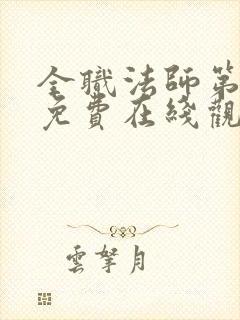 全職法師第
免費在綫觀
雲拏月